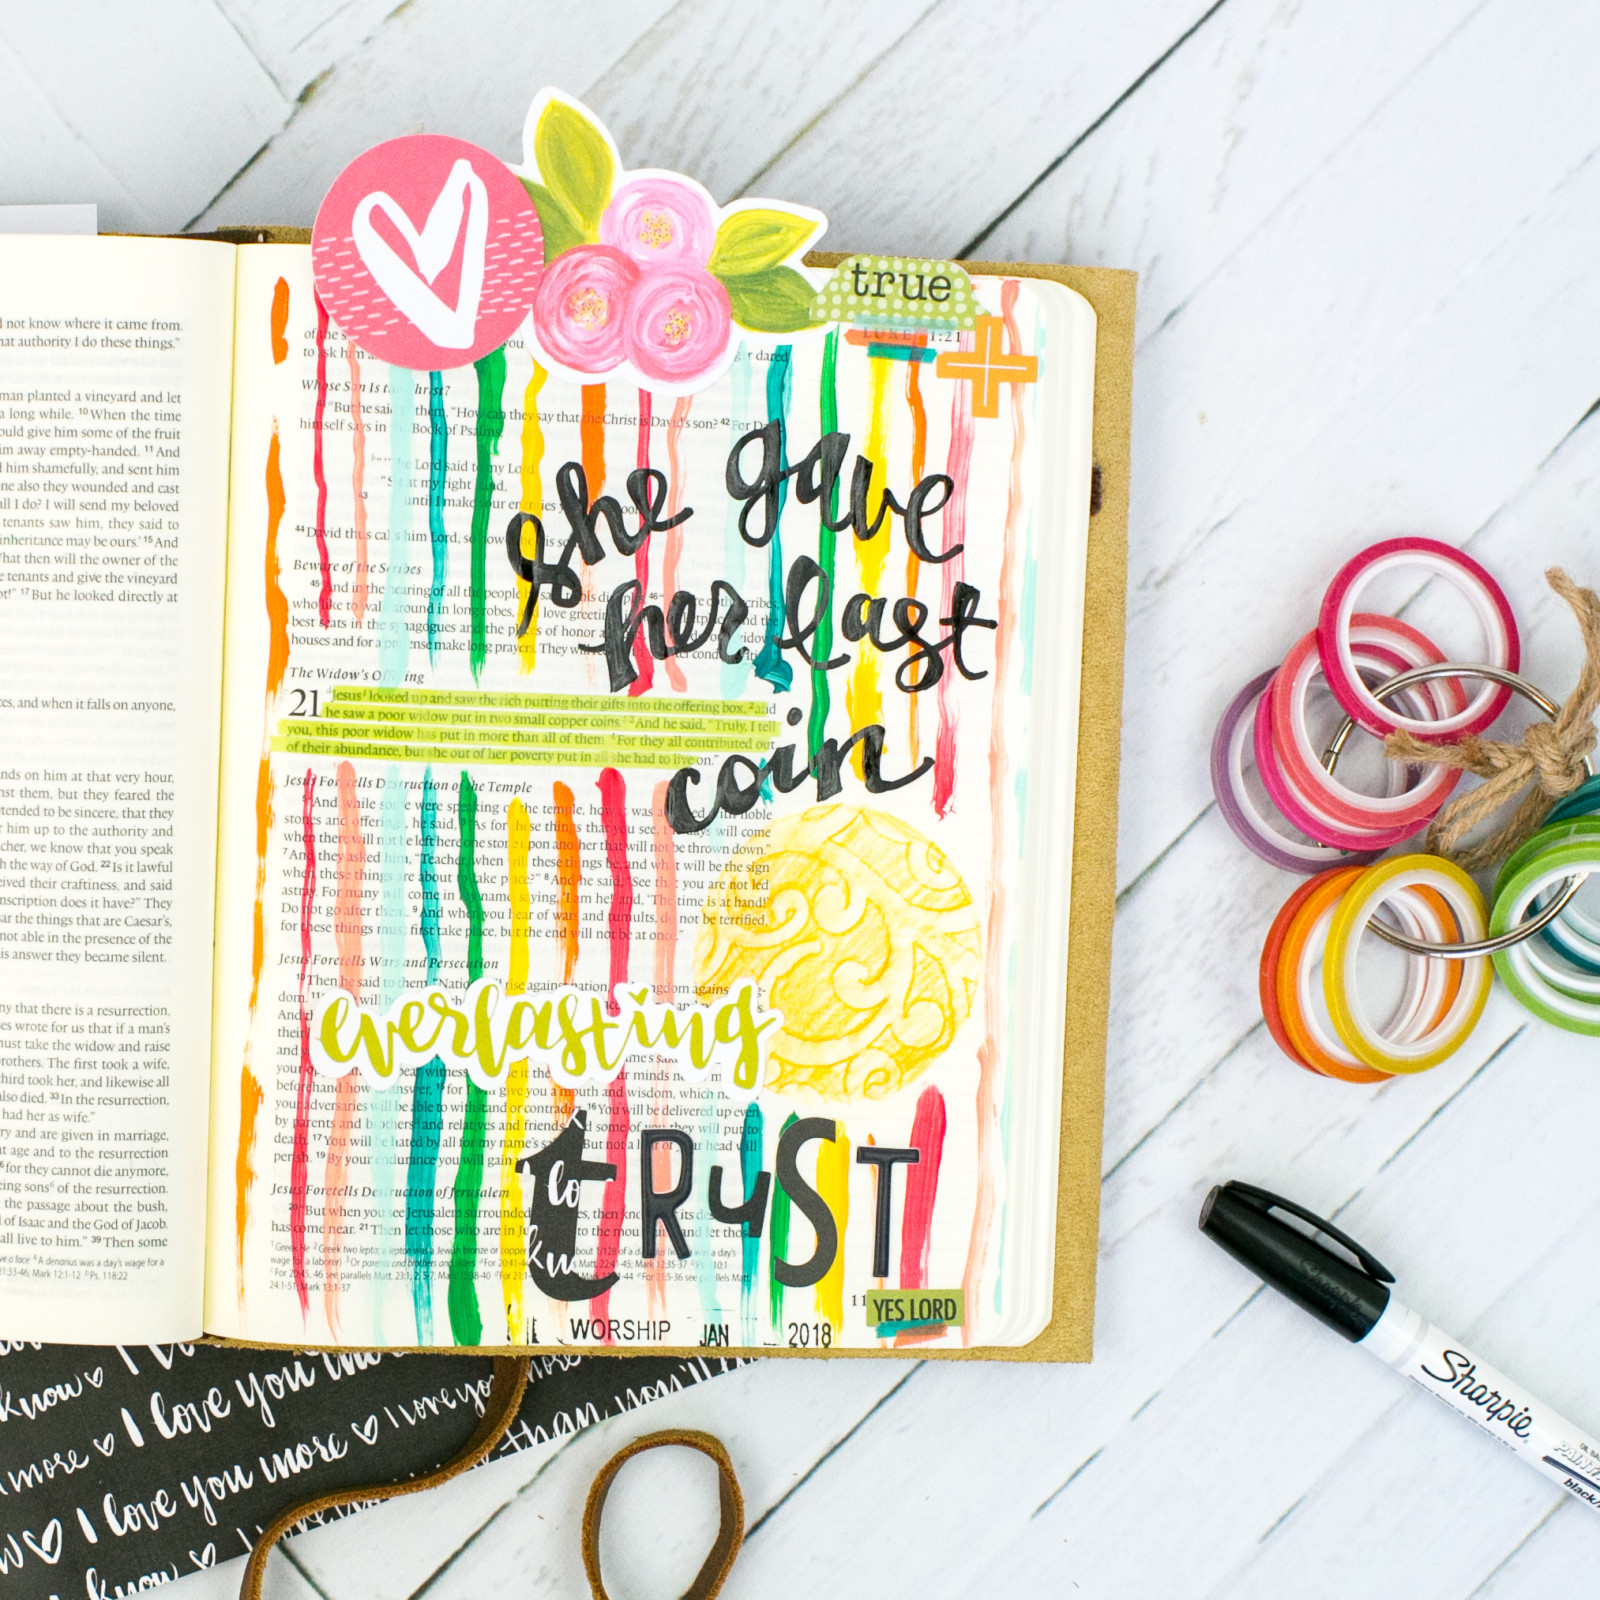 not know where it came from.
at authority I do these things."
man planted a vineyard and let
a long while. 10 When the time
ould give him some of the fruit
im away empty-handed. 11 And
him shamefully, and sent him
ne also they wounded and cast
all I do? I will send my beloved
tenants saw him, they said to
inheritance may be ours.' 15 And
What then will the owner of the
tenants and give the vineyard
ot!" 17 But he looked directly at
es, and when it falls on anyone,
nds on him at that very hour,
nst them, but they feared the
tended to be sincere, that they
him up to the authority and
cher, we know that you speak
h the way of God. 22 Is it lawful
eived their craftiness, and said
nscription does it have?" They
ar the things that are Caesar's,
not able in the presence of the
is answer they became silent.
ny that there is a resurrection,
es wrote for us that if a man's
must take the widow and raise
rothers. The first took a wife,
third took her, and likewise all
also died. 33 In the resurrection,
had her as wife."
ry and are given in marriage,
at age and to the resurrection
for they cannot die anymore,
eing sons of the resurrection.
the passage about the bush,
of Isaac and the God of Jacob.
all live to him." 39 Then some
true
LUKE 21:21
dared
Whose Son Is the Christ?
"But he said to them, "How can they say that the Christ is David's son? 42 For
himself says in the Book of Psalms,
the Lord said to my Lord
"Sit at my right hand,
43 until I make your enemies
44 David thus calls him Lord, so how
she gave
her last
coin
Beware of the Scribes
45 And in the hearing of all the people he said to his disciples
who like to walk around in long robes, and love greetings
best seats in the synagogues and the places of honor
houses and for a pretense make long prayers. They will
The Widow's Offering
21 Jesus looked up and saw the rich putting their gifts into the offering box, 2 and
he saw a poor widow put in two small copper coins. 3 And he said, "Truly, I tell
you, this poor widow has put in more than all of them. 4 For they all contributed out
of their abundance, but she out of her poverty put in all she had to live on."
Jesus Foretells Destruction of the Temple
5 And while some were speaking of the temple, how it was adorned with noble
stones and offerings, he said, 6 "As for these things that you see, the days will come
when there will not be left here one stone upon another that will not be thrown down."
7 And they asked him, "Teacher, when will these things be, and what will be the sign
when these things are about to take place?" 8 And he said, "See that you are not led
astray. For many will come in my name, saying, 'I am he!' and, 'The time is at hand!'
Do not go after them. 9 And when you hear of wars and tumults, do not be terrified,
for these things must first take place, but the end will not be at once."
Jesus Foretells Wars and Persecution
10 Then he said to them, "Nation will rise against nation, and kingdom against
everlasting
beforehand how to answer, 15 for I will give you a mouth and wisdom, which
your adversaries will be able to withstand or contradict. 16 You will be delivered up even
by parents and brothers and relatives and friends, and some of you they will put to
death. 17 You will be hated by all for my name's sake. But not a hair of your head will
perish. 19 By your endurance you will gain
tRuST
Jesus Foretells Destruction of Jerusalem
20 "But when you see Jerusalem surrounded
has come near. 21 Then let those who are in
YES LORD
WORSHIP JAN 2018
I love you more
I love you more
know
Sharpie